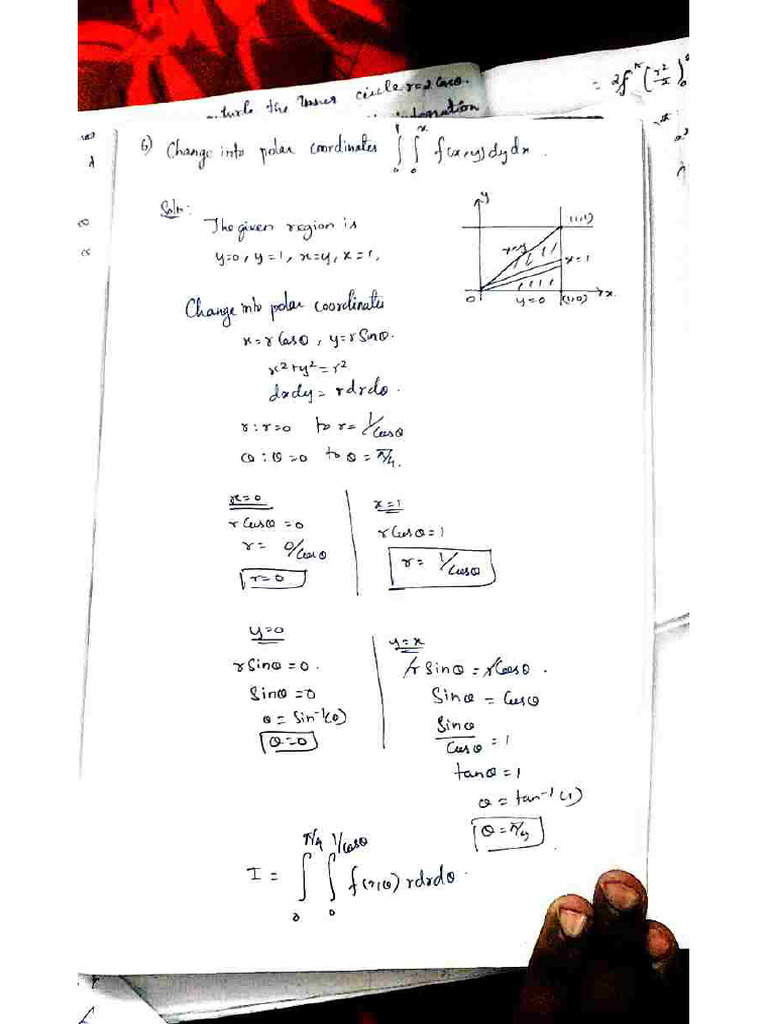 the inner circle r=2cosθ.
integration
= 2∫
6) Change into polar coordinates ∫₀¹ ∫₀ˣ f(x,y) dy dx.
Soln:
The given region is
y=0, y=1, x=y, x=1,
y
(1,1)
x=y
x=1
0
y=0
(1,0)
x.
Change into polar coordinates
x=rcosθ, y=rsinθ.
x²+y²=r²
dxdy = rdrdθ.
r: r=0 to r= 1/cosθ
θ: θ=0 to θ=π/4.
x=0
rcosθ=0
r= 0/cosθ
r=0
x=1
rcosθ=1
r= 1/cosθ
y=0
rsinθ=0.
Sinθ=0
θ=Sin⁻¹(0)
θ=0
y=x
rSinθ=rcosθ.
Sinθ=Cosθ
Sinθ/Cosθ=1
tanθ=1
θ=tan⁻¹(1)
θ=π/4
I = ∫₀^π/4 ∫₀^1/cosθ f(r,θ) rdrdθ.